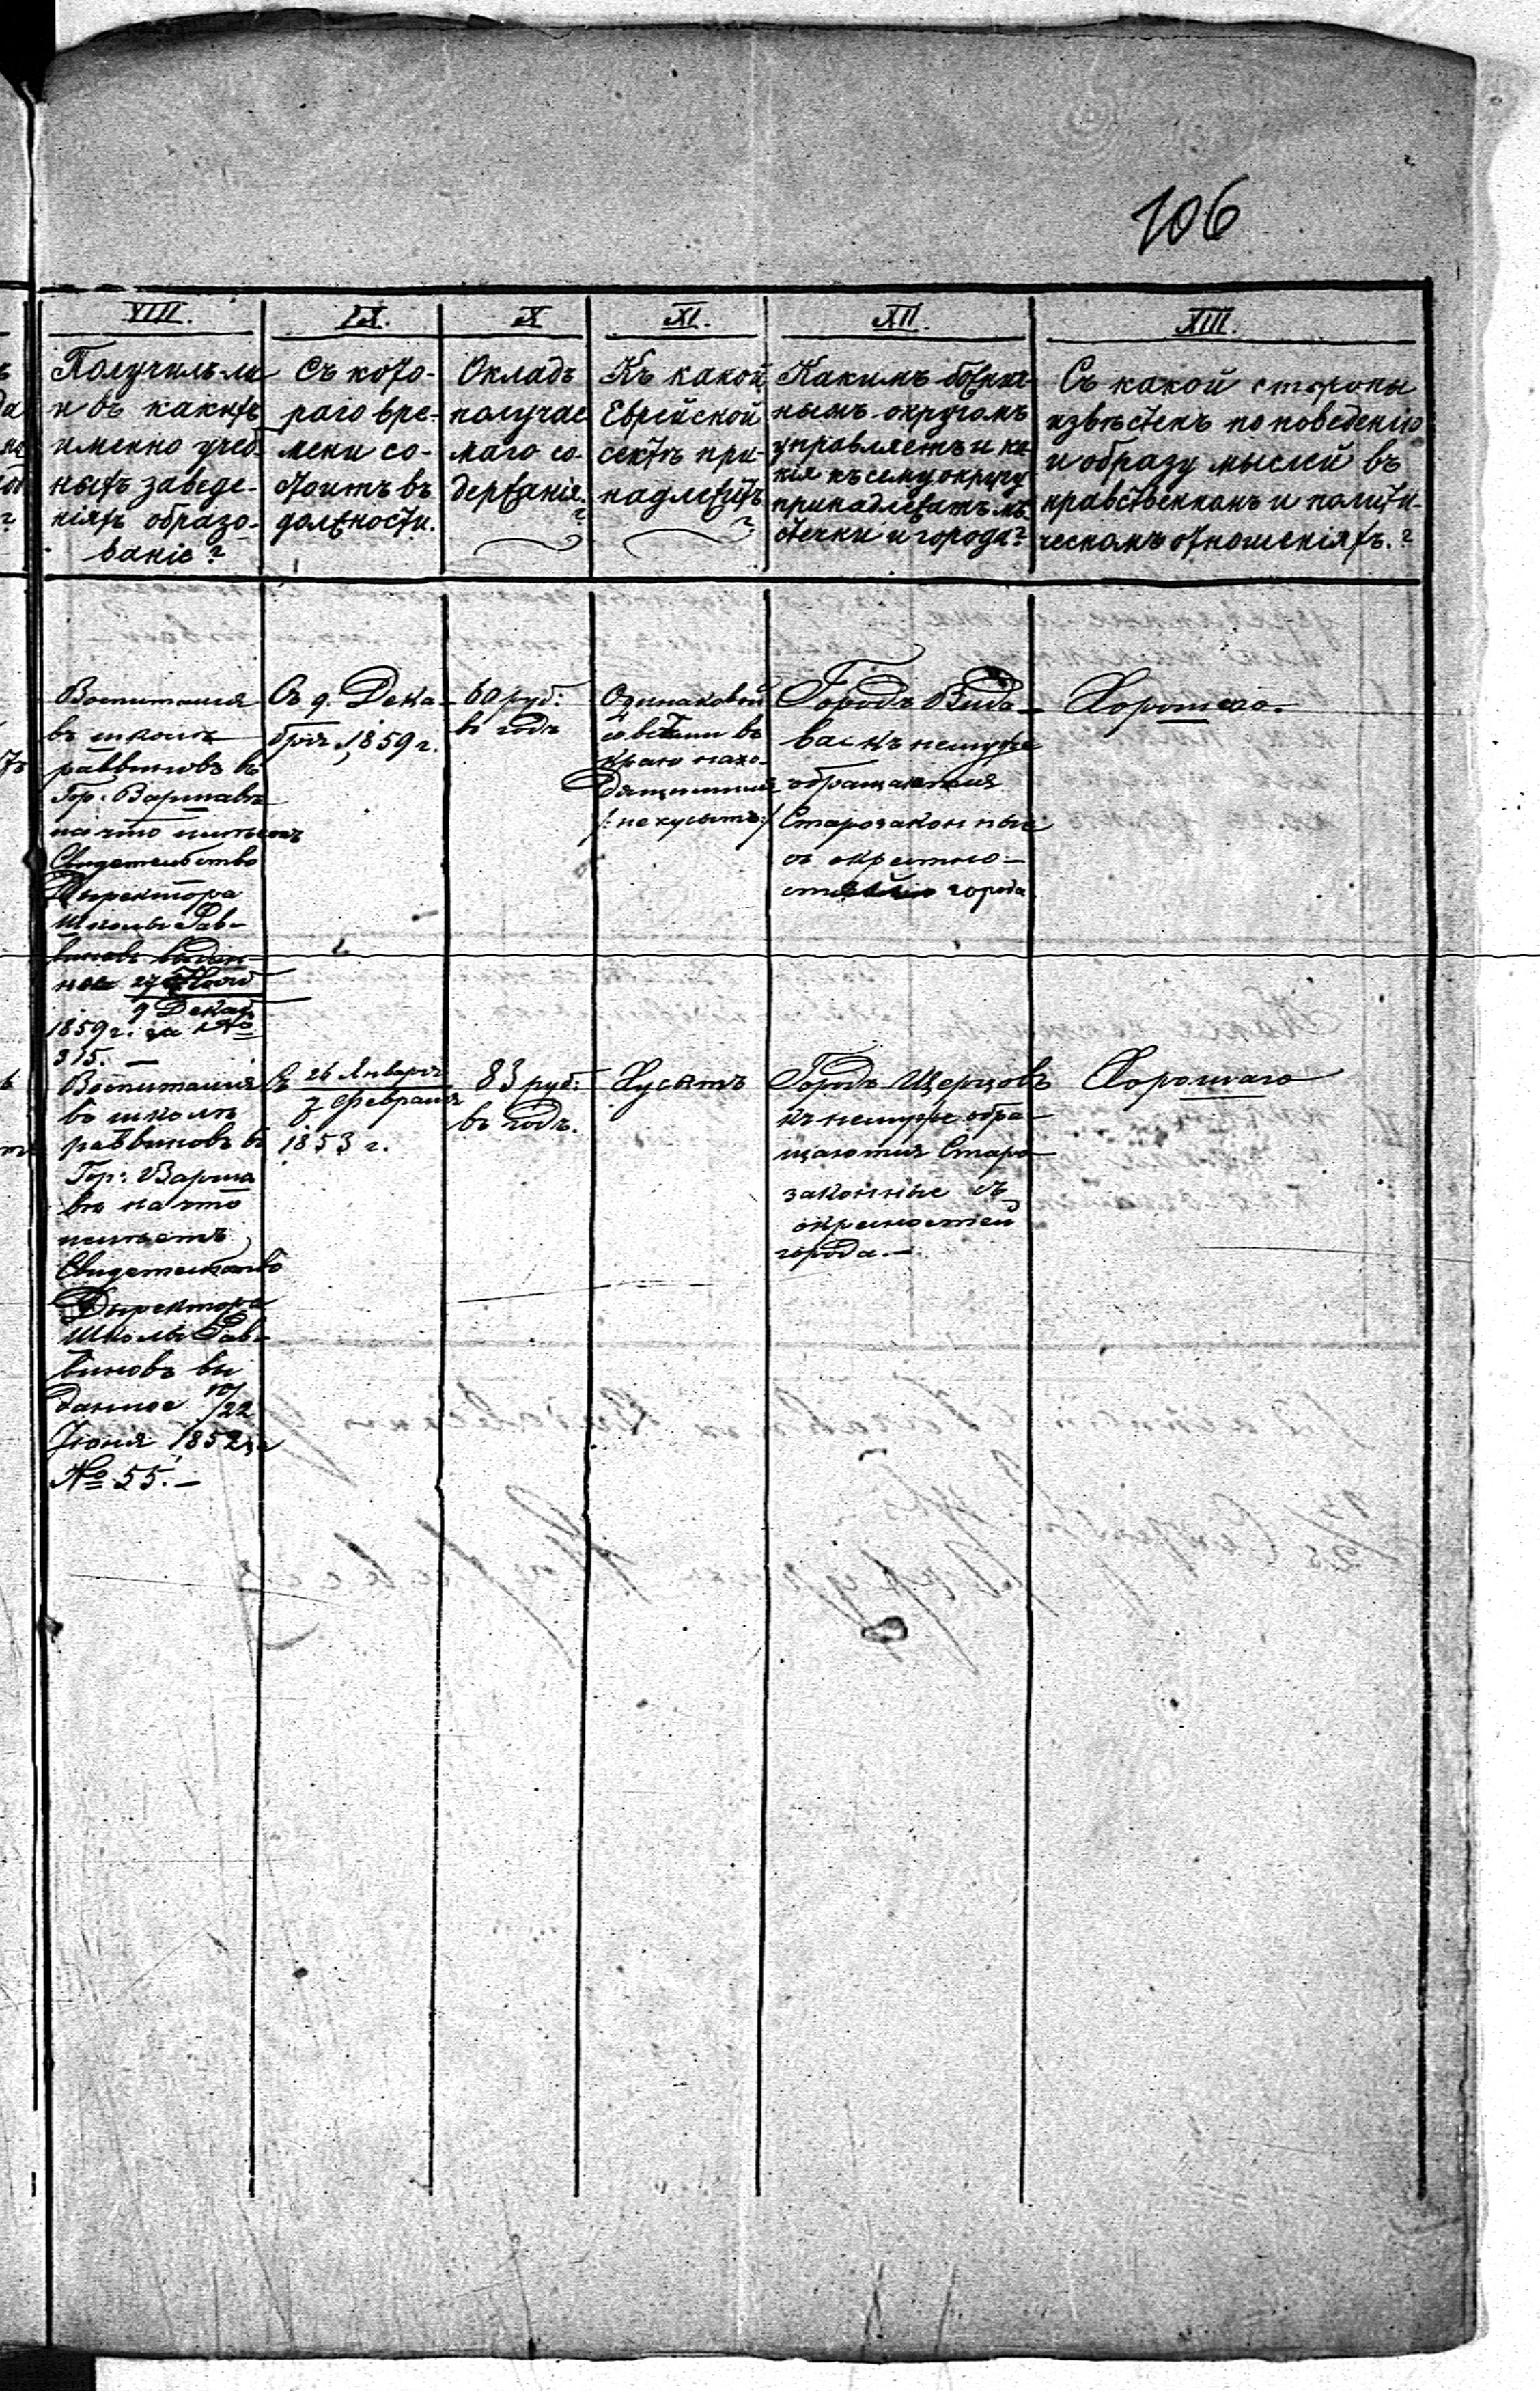 106
VIII.
Получилъ-ли
и въ какихъ
именно учеб-
ныхъ заведе-
ніяхъ образо-
ваніе?
IX.
Съ кото-
раго вре-
мени со-
стоитъ въ
должности.
X
Окладъ
получае
маго со-
держанія.
?
XI.
Къ какой
Еврейской
сектѣ при-
надлежитъ
?
XII.
Какимъ божнич-
нымъ округомъ
управляетъ и ка-
кія къ сему округу
принадлежатъ мѣ-
стечки и города?
XIII.
Съ какой стороны
извѣстенъ по поведенію
и образу мыслей въ
нравственномъ и полити-
ческомъ отношеніяхъ.?
Воспитался
въ школѣ
раввиновъ въ
Гор: Варшавѣ
на что имѣетъ
Свидетельство
Дыректора
Школы Рав-
виновъ выдан-
ное 27 Нояб
9 Декаб
1859 г. за №
315.—
Съ 9. Дека-
бря 1859 г.
60 руб:
въ годъ
Одинаковой
со всѣми въ
краю нахо-
дящимися
/: не хусытъ:/
Городъ Вида-
ва съ къ нему же
обращаются
Старозаконные
съ окрестно-
стей города
Хорошаго.
Воспитался
въ школѣ
раввиновъ въ
Гор: Варша
вѣ на что
имѣетъ
Свидетельство
Дыректора
Школы Рав-
виновъ вы
данное 10/22
Іюня 1852 за
№ 55.—
Съ 26 Января
7 Февраля
1853 г.
83 руб:
въ годъ.
Хусытъ
Городъ Щерцовъ
къ нему же обра-
щаются Старо-
законные съ
окресностей
города.—
Хорошаго